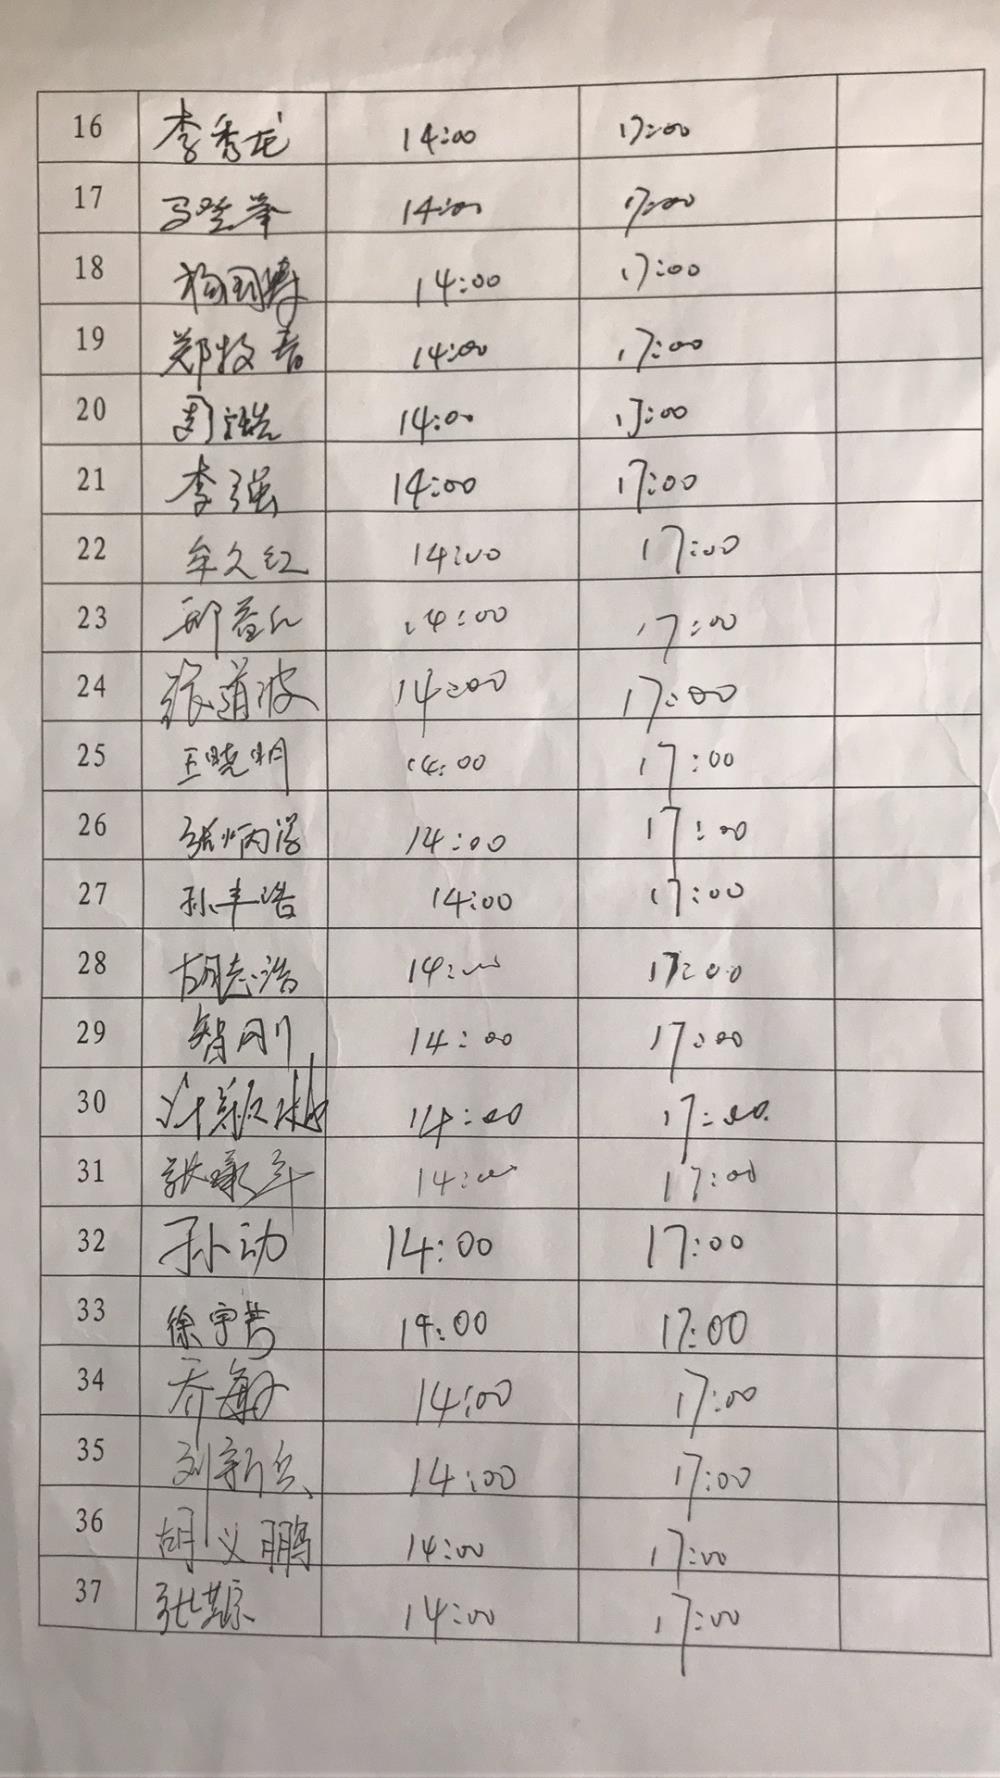 16 李秀龙 14:00 17:00
17 马登峰 14:00 17:00
18 杨国涛 14:00 17:00
19 郑牧春 14:00 17:00
20 14:00 17:00
21 李强 14:00 17:00
22 牟久红 14:00 17:00
23 14:00 17:00
24 张道波 14:00 17:00
25 王晓明 14:00 17:00
26 14:00 17:00
27 孙丰浩 14:00 17:00
28 胡志浩 14:00 17:00
29 智刚 14:00 17:00
30 14:00 17:00
31 14:00 17:00
32 孙动 14:00 17:00
33 14:00 17:00
34 乔敏 14:00 17:00
35 刘新兵 14:00 17:00
36 胡义鹏 14:00 17:00
37 14:00 17:00